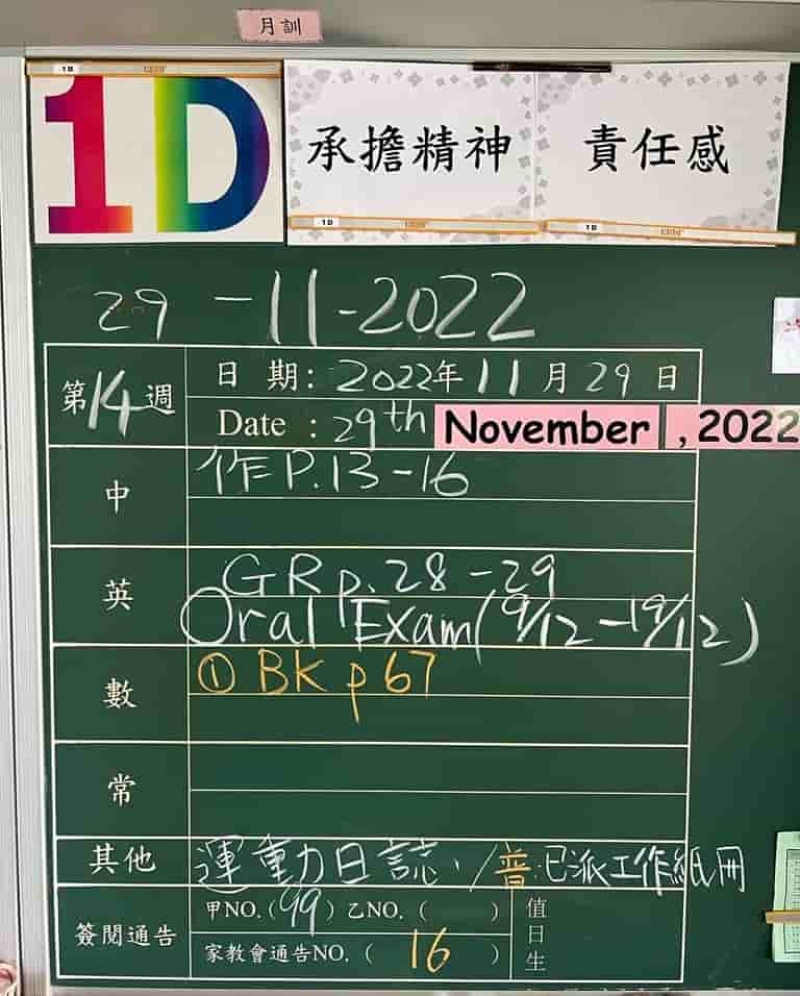 月訓
1D
承擔精神 責任感
29-11-2022
第14週
日 期: 2022年11月29日
Date : 29th November , 2022
中
作P.13-16
英
GR p.28-29
Oral Exam(9/12-19/12)
數
① BK p67
常
其他
運動日誌、/普:已派工作紙冊
簽閱通告
甲NO.(99) 乙NO. ( )
家教會通告NO. ( 16 )
值日生